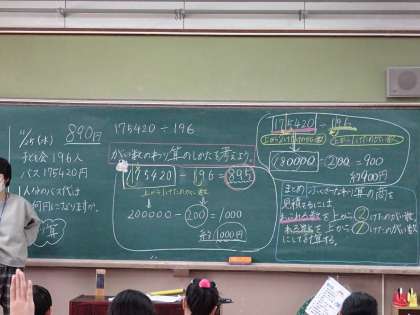 11/25(水) 890円
子ども会196人
バス175420円
1人分のバス代は
何円になりますか。
算
175420÷196
がい数のわり算のしかたを考えよう。
175420÷196=895
上から1けたのがい数
200000÷200=1000
約1000円
175420÷196
上から2けたのがい数 上から1けたのがい数
180000÷200=900
約900円
まとめ
わり算の商を
見積もるには、
わられる数を上から②けたのがい数
わる数を上から①けたのがい数
にして計算する。